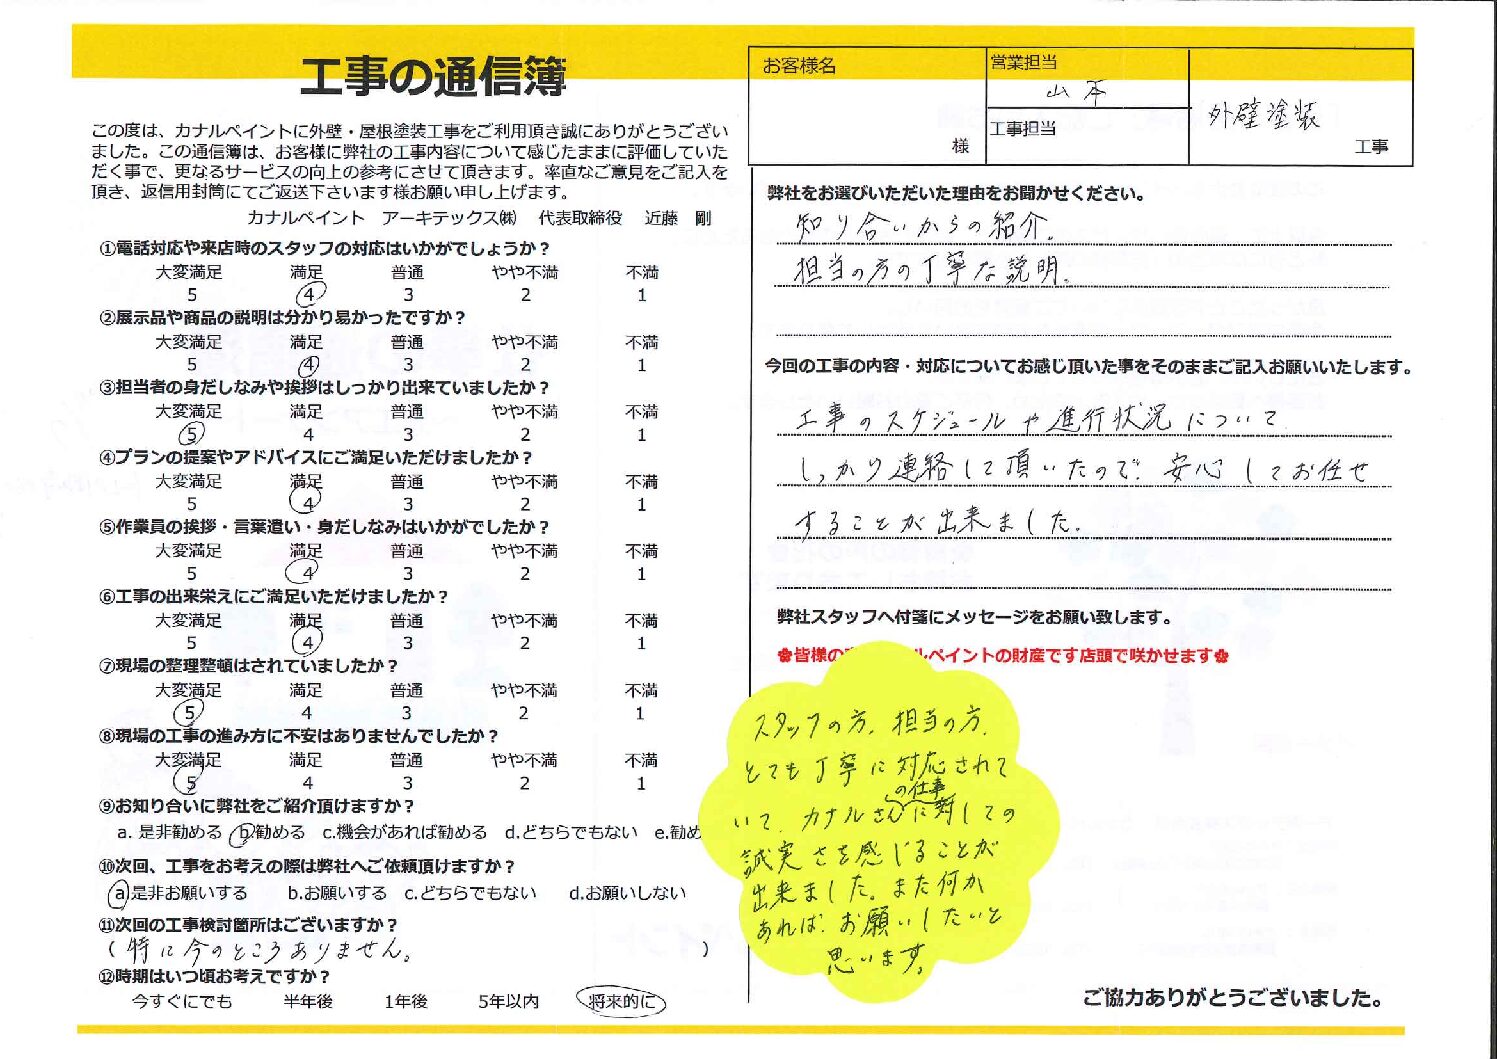 工事の通信簿
お客様名
様
営業担当
山本
工事担当
外壁塗装
工事
この度は、カナルペイントに外壁・屋根塗装工事をご利用頂き誠にありがとうござい
ました。この通信簿は、お客様に弊社の工事内容について感じたままに評価していた
だく事で、更なるサービスの向上の参考にさせて頂きます。率直なご意見をご記入を
頂き、返信用封筒にてご返送下さいます様お願い申し上げます。
カナルペイント アーキテックス㈱ 代表取締役 近藤 剛
①電話対応や来店時のスタッフの対応はいかがでしょうか？
大変満足 満足 普通 やや不満 不満
5 4 3 2 1
②展示品や商品の説明は分かり易かったですか？
大変満足 満足 普通 やや不満 不満
5 4 3 2 1
③担当者の身だしなみや挨拶はしっかり出来ていましたか？
大変満足 満足 普通 やや不満 不満
5 4 3 2 1
④プランの提案やアドバイスにご満足いただけましたか？
大変満足 満足 普通 やや不満 不満
5 4 3 2 1
⑤作業員の挨拶・言葉遣い・身だしなみはいかがでしたか？
大変満足 満足 普通 やや不満 不満
5 4 3 2 1
⑥工事の出来栄えにご満足いただけましたか？
大変満足 満足 普通 やや不満 不満
5 4 3 2 1
⑦現場の整理整頓はされていましたか？
大変満足 満足 普通 やや不満 不満
5 4 3 2 1
⑧現場の工事の進み方に不安はありませんでしたか？
大変満足 満足 普通 やや不満 不満
5 4 3 2 1
⑨お知り合いに弊社をご紹介頂けますか？
a. 是非勧める b勧める c.機会があれば勧める d.どちらでもない e.勧め
⑩次回、工事をお考えの際は弊社へご依頼頂けますか？
a是非お願いする b.お願いする c.どちらでもない d.お願いしない
⑪次回の工事検討箇所はございますか？
( 特に今のところありません。 )
⑫時期はいつ頃お考えですか？
今すぐにでも 半年後 1年後 5年以内 将来的に
弊社をお選びいただいた理由をお聞かせください。
知り合いからの紹介。
担当の方の丁寧な説明。
今回の工事の内容・対応についてお感じ頂いた事をそのままご記入お願いいたします。
工事のスケジュールや進行状況について
しっかり連絡して頂いたので、安心してお任せ
することが出来ました。
弊社スタッフへ付箋にメッセージをお願い致します。
✿皆様の ルペイントの財産です店頭で咲かせます✿
スタッフの方、担当の方、
とても丁寧に対応されて
の仕事
いて、カナルさんに対しての
誠実さを感じることが
出来ました。また何か
あれば、お願いしたいと
思います。
ご協力ありがとうございました。